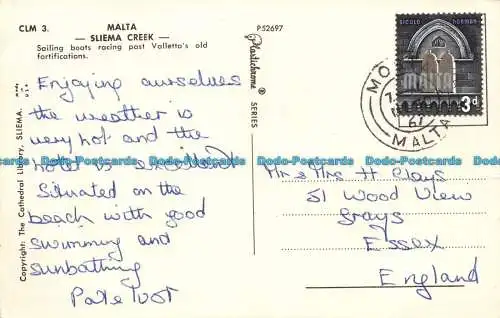 CLM 3.
MALTA
— SLIEMA CREEK —
Sailing boats racing past Valletta's old
fortifications.
P52697
Plastichrome ®
SERIES
MADE
U S A
Copyright: The Cathedral Library, SLIEMA.
SICULO NORMAN
MALTA
3d
MO
67
MALTA
Enjoying ourselves
the weather is
very hot and the
hotel is excellent
Situated on the
beach with good
swimming and
sunbathing
Mr & Mrs H Clays
51 Wood View
Grays
Essex
England
Dodo-Postcards.com